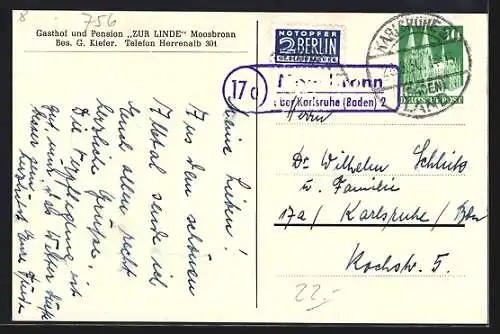 8
756
Gasthof und Pension „ZUR LINDE" Moosbronn
Bes. G. Kiefer. Telefon Herrenalb 301
NOTOPFER
2 BERLIN
STEUERMARKE
KARLSRUHE
(BADEN)
DEUTSCHE POST
17a
Moosbronn
über Karlsruhe (Baden) 2
Meine Lieben!
Aus dem schönen
Albtal sende ich
Euch allen recht
herzliche Grüsse.
Die Verpflegung ist
gut, nur das Wetter dürfte
besser sein.
Herzlichst Eure
Herrn
Dr Wilhelm Schlick
u. Familie
17a/ Karlsruhe/Bdn
Kochstr. 5.
22.-